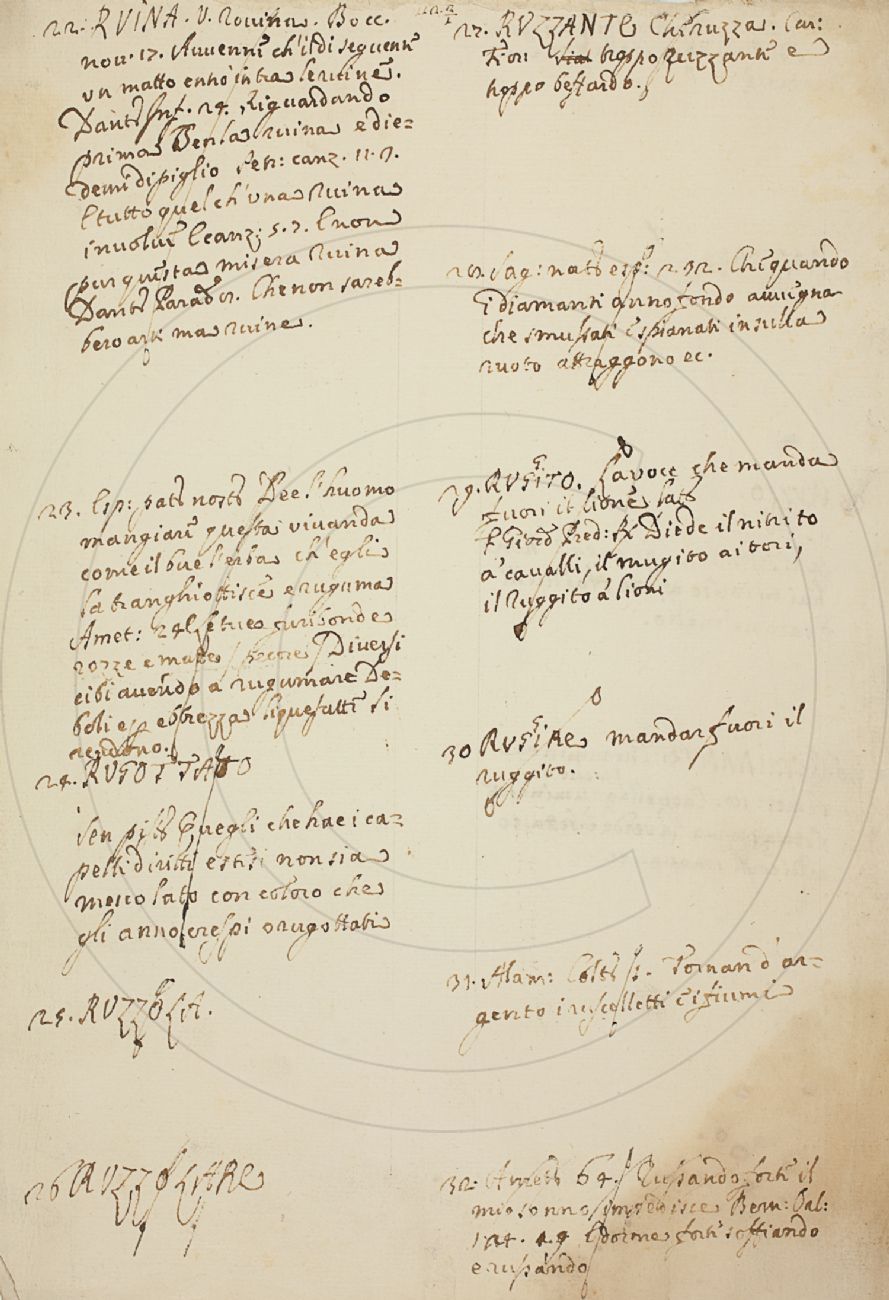 22. RVINA. V. Rovina. Bocc.
nov. 17. Avvenne ch'il dì seguente
un matto entrò intra le ruine.
Dante Inf. 24. Riguardando
prima Ben la ruina e die-
demi di piglio Petr: canz. 11. 7.
E tutto quel ch'una ruina
involve E canz: 5. 7. E non
pur questa misera ruina
Dante Parad. 8. Che non sareb-
bero arti ma ruine.
23. Esp: pat: nost: Dee l'huomo
mangiare questa vivanda
come il bue l'erba ch'egli
la tranghiottisce e ruguma
Amet: 24 E le tue furibonde
rozze e matte pecore Diversi
cibi avendo a rugumare De-
boli e per ebbrezza liquefatte si
rendono.
24. RVGOTTATO
Sen pist: Quegli che hae i ca-
pelli diritti e stesi non sia
mescolato con coloro che
gli anno crespi o rugottati
25. RVZZOLA.
26 RVZZOLARE
27. RVZZANTE Che ruzza. Car:
Fior: troppo ruzzante e
troppo beffardo.
28. Sag: nat: esp: 232. Che quando
i diamanti anno fondo avvegna
che smussati e spianati in sulla
ruota attraggono ec.
29. RVGGITO. La voce che manda
fuori il lione
F. Giord: Pred: R Diede il nitrito
a' cavalli, il mugito ai tori,
il Ruggito a' lioni
30 RVGGIRE mandar fuori il
ruggito.
31. Alam: Colt: Tornan d'ar-
gento i ruscelletti e i fiumi
32. 64. Russando forte il
mio sonno impedisce Bern: Oal:
1. 14. 49 E dorme forte soffiando
e russando